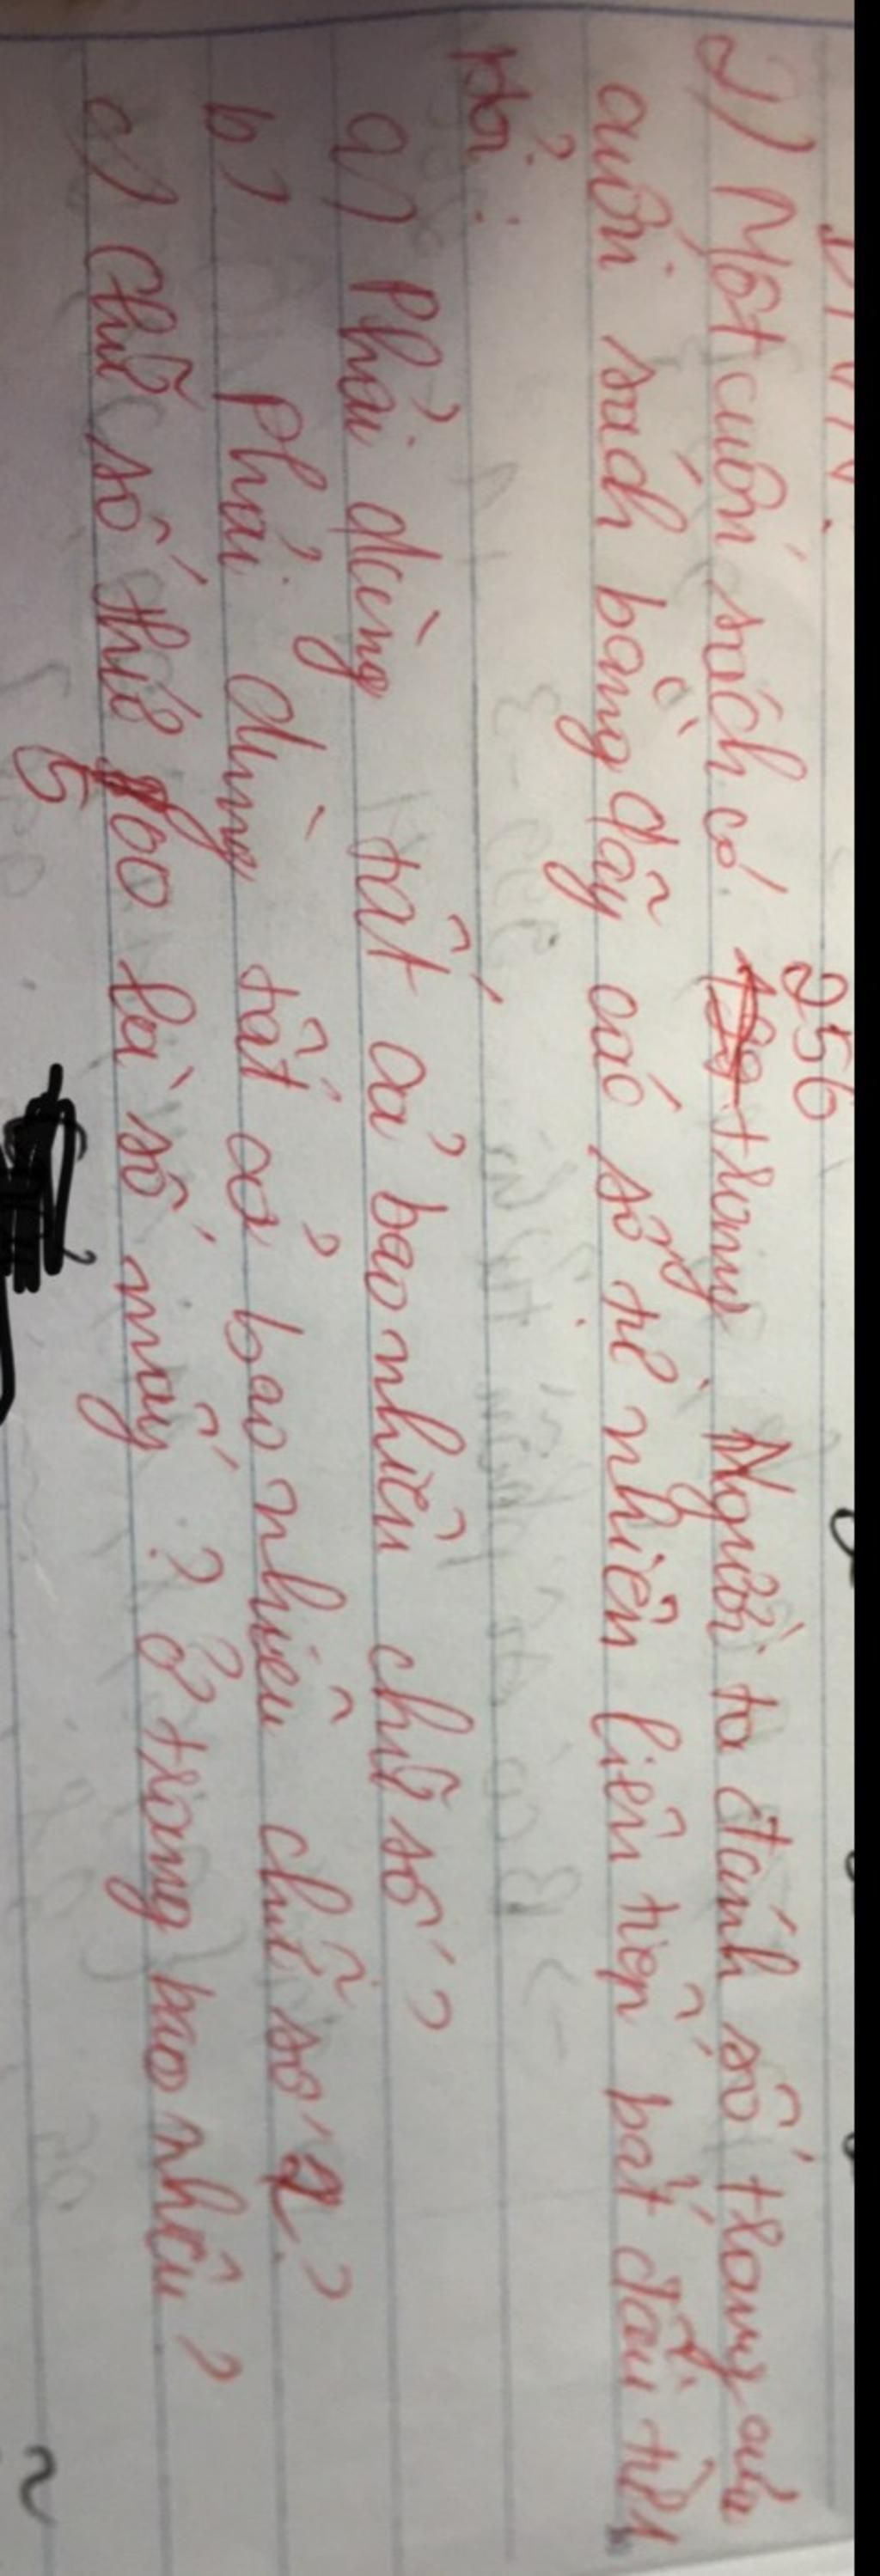 256
2) Một cuốn sách có trang. Người ta đánh số trang của
cuốn sách bằng dãy các số tự nhiên liên tiếp bắt đầu từ 1
Hỏi:
a) Phải dùng tất cả bao nhiêu chữ số?
b) Phải dùng tất cả bao nhiêu chữ số 2?
c) Chữ số thứ 500 là số mấy? Ở trang bao nhiêu?
5